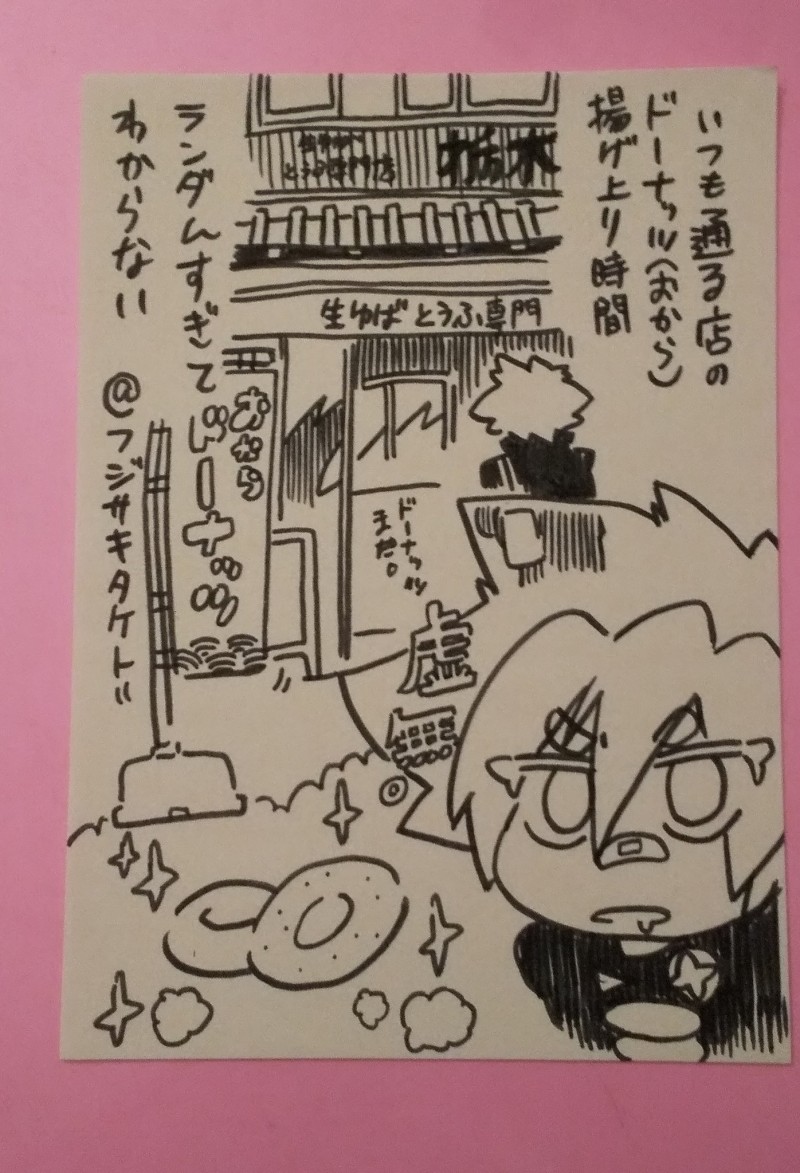 いつも通る店の
ドーナッツ（おから）
揚げ上り時間
ランダムすぎて
わからない
@フジサキタケト
栃木
とうふ専門店
生ゆば とうふ専門
おから
ドーナッツ
ドーナッツ
まだ。